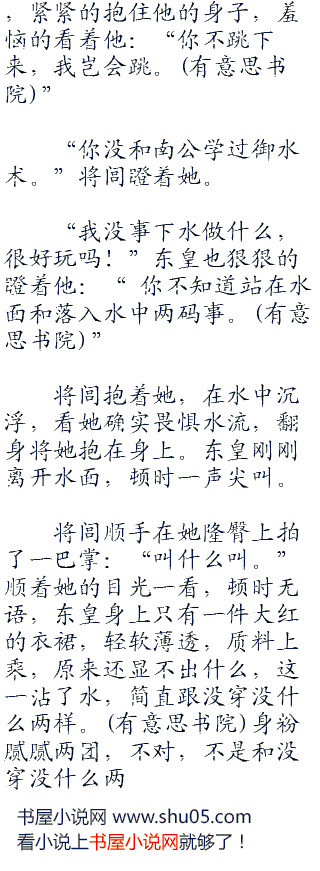 ，紧紧的抱住他的身子，羞
恼的看着他：“你不跳下
来，我岂会跳。(有意思书
院)”
“你没和南公学过御水
术。”将闾瞪着她。
“我没事下水做什么，
很好玩吗！”东皇也狠狠的
瞪着他：“ 你不知道站在水
面和落入水中两码事。(有意
思书院)”
将闾抱着她，在水中沉
浮，看她确实畏惧水流，翻
身将她抱在身上。东皇刚刚
离开水面，顿时一声尖叫。
将闾顺手在她隆臀上拍
了一巴掌：“叫什么叫。”
顺着她的目光一看，顿时无
语，东皇身上只有一件大红
的衣裙，轻软薄透，质料上
乘，原来还显不出什么，这
一沾了水，简直跟没穿没什
么两样。(有意思书院)身粉
腻腻两团，不对，不是和没
穿没什么两
书屋小说网 www.shu05.com
看小说上书屋小说网就够了！